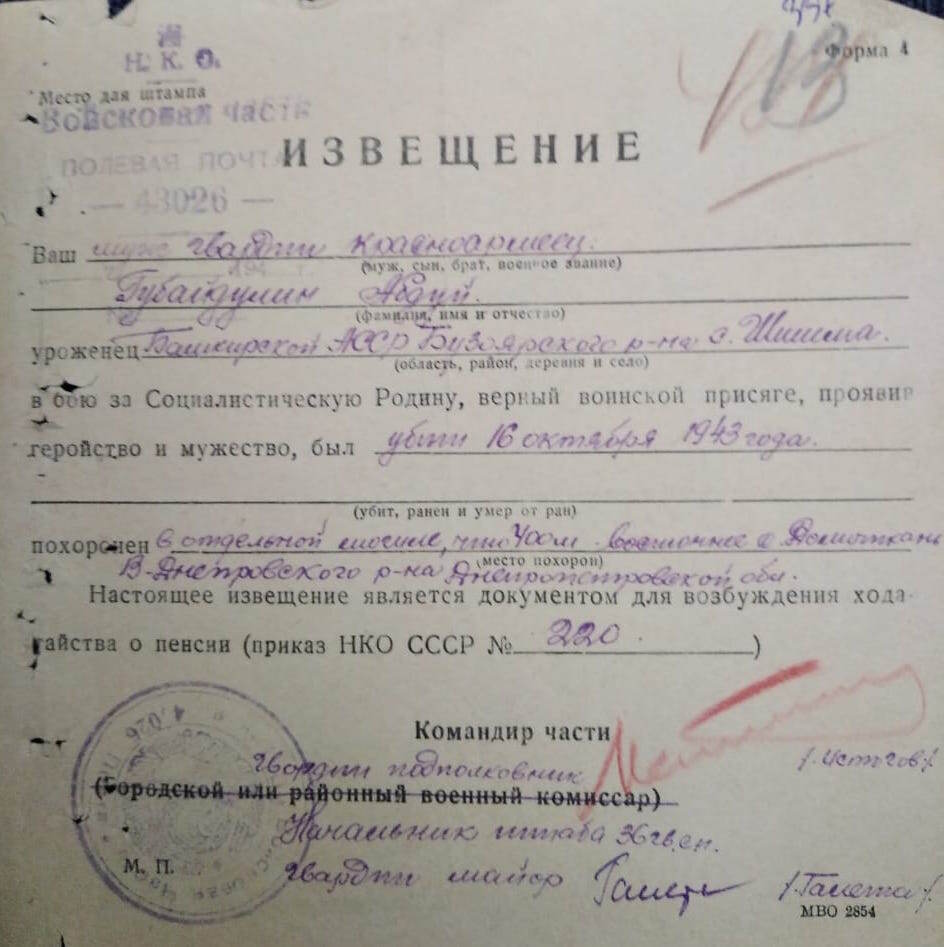 Н. К. О.
Форма 4
13
Место для штампа
Войсковая часть
ПОЛЕВАЯ ПОЧТА
— 43026 —
ИЗВЕЩЕНИЕ
Ваш муж гвардии красноармеец.
(муж, сын, брат, военное звание)
Губайдулин Абдуй.
(фамилия, имя и отчество)
уроженец Башкирской АССР Бузоярского р-на с.
(область, район, деревня и село)
в бою за Социалистическую Родину, верный воинской присяге, проявив
геройство и мужество, был убит 16 октября 1943 года.
(убит, ранен и умер от ран)
похоронен в отдельной могиле, что 400 м. восточнее с Домоткань
(место похорон)
В-Днепровского р-на Днепропетровской обл.
Настоящее извещение является документом для возбуждения хода-
тайства о пенсии (приказ НКО СССР № 220 . )
Командир части
гвардии подполковник
(Городской или районный военный комиссар)
Начальник штаба 36 гв. сп.
М. П.
гвардии майор
МВО 2854